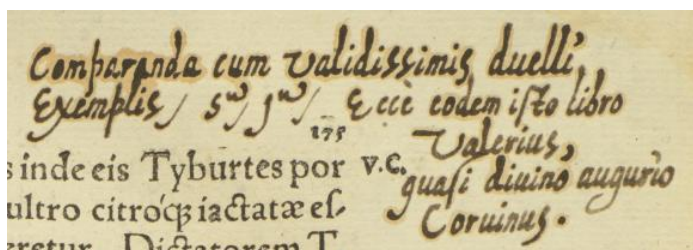 Comparanda cum validissimis duelli,
Exemplis/ Ecce eodem isto libro
Valerius,
quasi diuino augurio
Coruinus.
175
s inde eis Tyburtes por V.C.
ultro citróq; iactatæ es-
eretur. Dictatorem T.